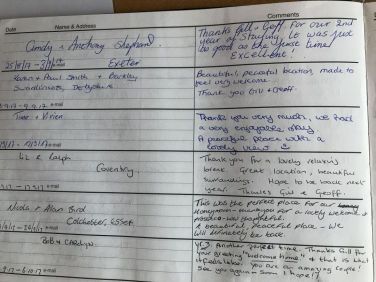 Date
Name & Address
Comments
Cindy & Anthony Shephard.
Exeter
25/8/17 -
Thanks Gill & Geoff for our 2nd
year of staying, it was just
as good as the first time!
EXCELLENT!
Karen + Paul Smith + Barkley
Swadlincote, Derbyshire
Beautiful, peaceful location, made to
feel very welcome.
Thank you Gill + Geoff.
Thank you very much, we had
a very enjoyable stay
A peaceful place with a
lovely view
Liz & Ralph
Coventry.
Thank you for a lovely relaxing
break. Great location, beautiful
surroundings. Hope to be back next
year. Thanks Gill & Geoff.
Nicola + Alan Bird
Colchester, Essex
This was the perfect place for our
honeymoon - thank you for a lovely welcome &
A beautiful, peaceful place - we
will definitely be back.
Bob & Carolyn.
YES Another perfect time. Thanks Gill for
your greeting "welcome home" & that is what
it feels like! you are an amazing couple!
See you again - soon I hope!